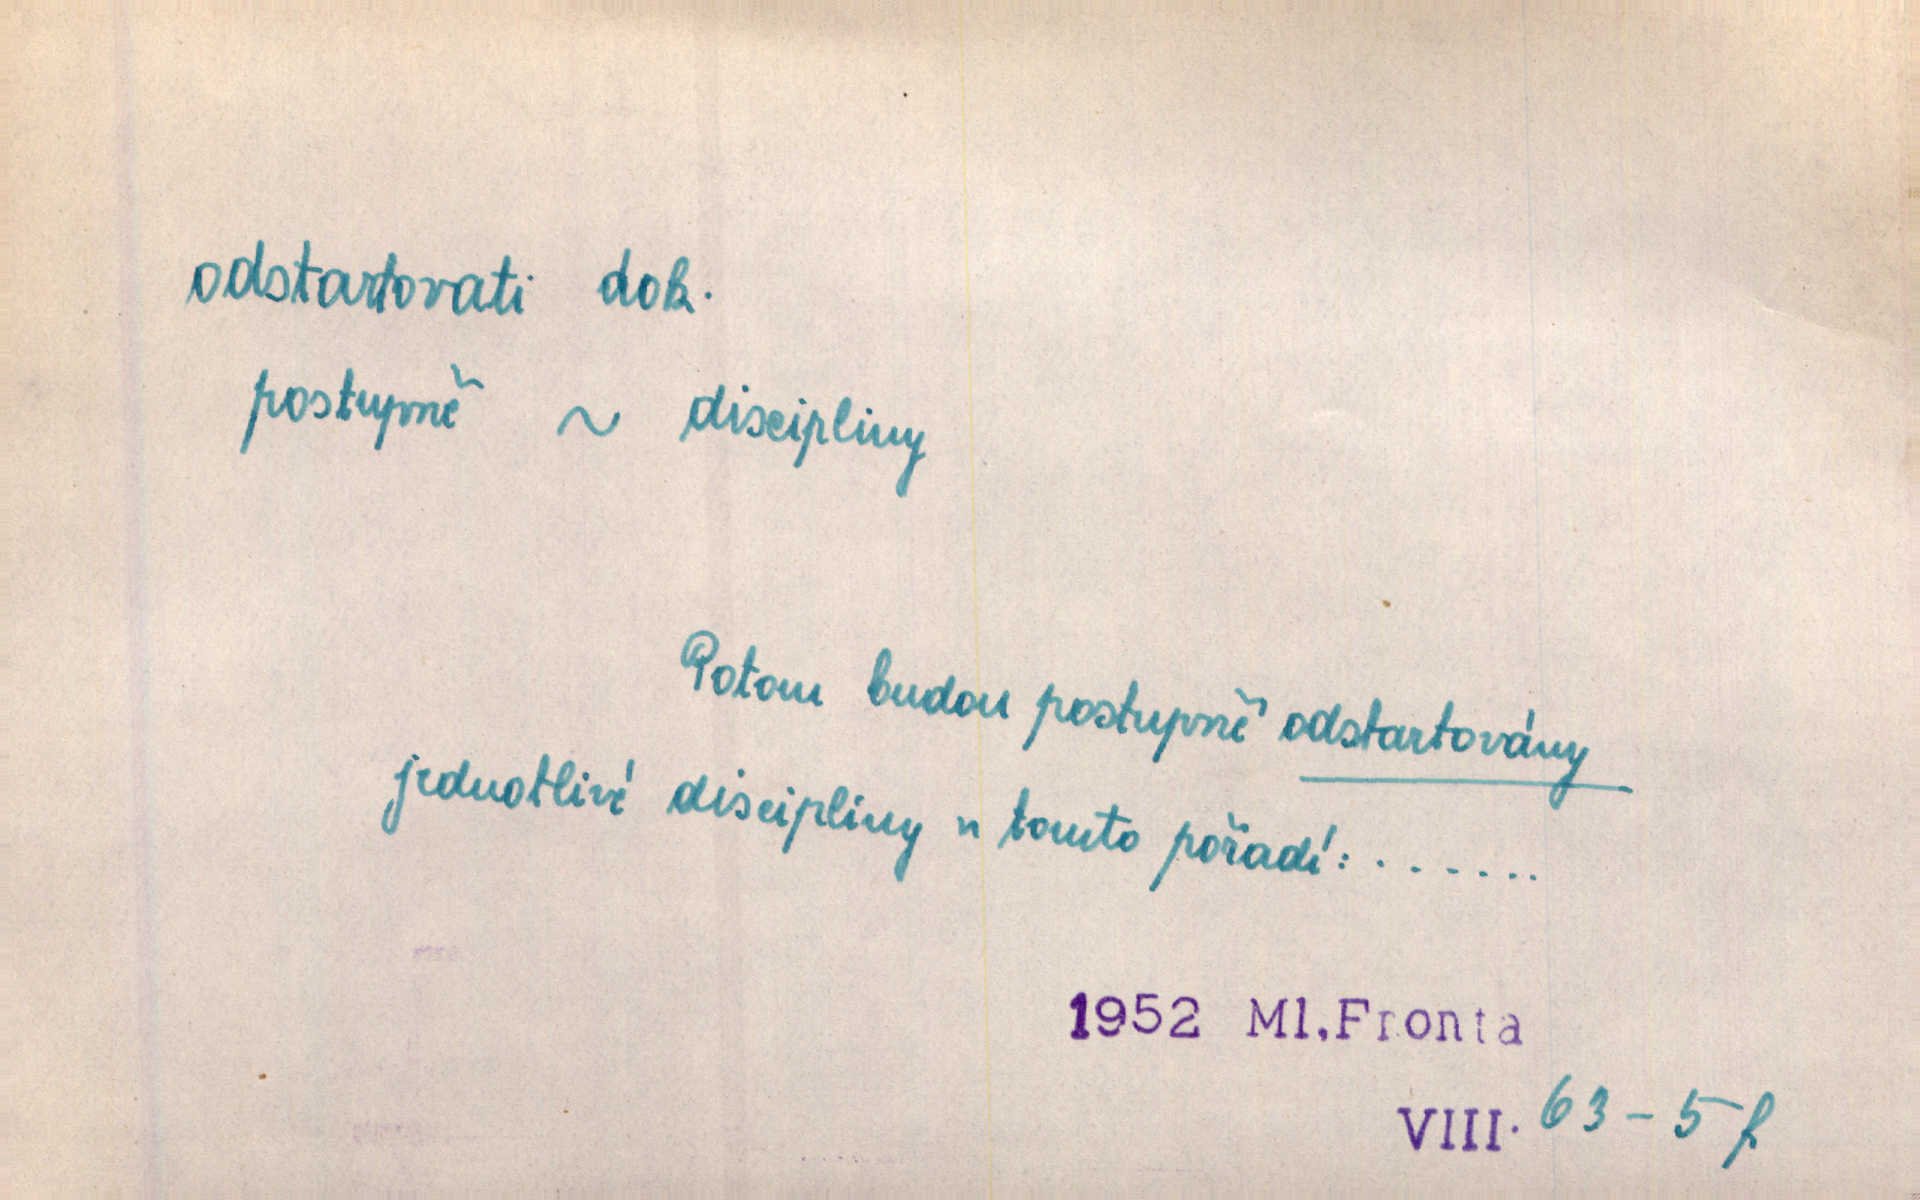 odstartovati dok.
postupně ~ discipliny
Potom budou postupně odstartovány
jednotlivé discipliny v tomto pořadí: . . . . . . .
1952 Ml.Fronta
VIII. 63 - 5 f